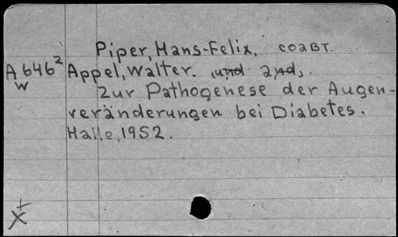 Piper, Hans-Felix, соавт.
A 646² Appel, Walter. und and.
W
Zur Pathogenese der Augen-
veränderungen bei Diabetes.
Halle, 1952.
X